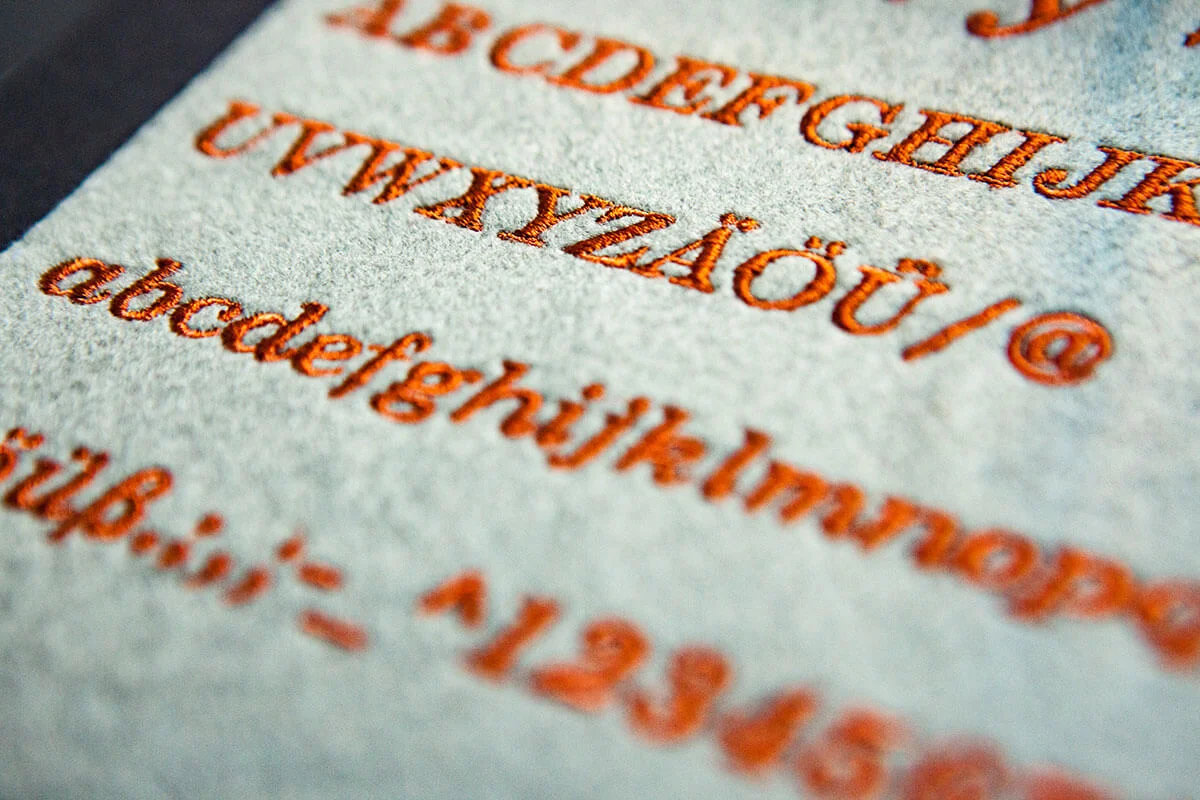 ABCDEFGHIJK
UVWXYZÄÖÜ/@
abcdefghijklmnop
üß.:,;'-_^12345